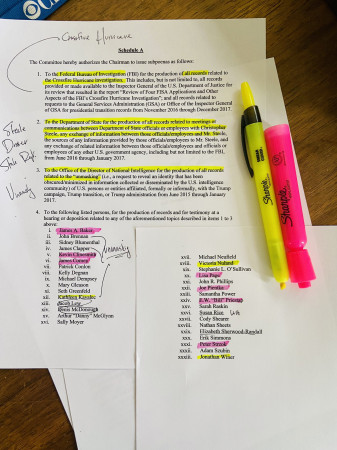 Crossfire Hurricane
Schedule A
The Committee hereby authorizes the Chairman to issue subpoenas as follows:
1. To the Federal Bureau of Investigation (FBI) for the production of all records related to
the Crossfire Hurricane investigation. This includes, but is not limited to, all records
provided or made available to the Inspector General of the U.S. Department of Justice for
its review that resulted in the report "Review of Four FISA Applications and Other
Aspects of the FBI's Crossfire Hurricane Investigation", and all records related to
requests to the General Services Administration (GSA) or Office of the Inspector General
of GSA for presidential transition records from November 2016 through December 2017.
2. To the Department of State for the production of all records related to meetings or
communications between Department of State officials or employees with Christopher
Steele, any exchange of information between those officials/employees and Mr. Steele,
the sources of any information provided by those officials/employees to Mr. Steele, and
any exchange of related information between those officials/employees and officials or
employees of any other U.S. government agency, including but not limited to the FBI,
from June 2016 through January 2017.
3. To the Office of the Director of National Intelligence for the production of all records
related to the "unmasking" (i.e., a request to reveal an identity that has been
obscured/minimized in information collected or disseminated by the intelligence
community) of U.S. persons or entities affiliated, formally or informally, with the Trump
campaign, Trump transition, or Trump administration from June 2015 through January
2017.
4. To the following listed persons, for the production of records and for testimony at a
hearing or deposition related to any of the aforementioned topics described in items 1 to 3
above:
i. James A. Baker
ii. John Brennan
iii. Sidney Blumenthal
iv. James Clapper
v. Kevin Clinesmith
vi. James Comey
vii. Patrick Conlon
viii. Kelly Degnan
ix. Michael Dempsey
x. Mary Gleason
xi. Seth Greenfeld
xii. Kathleen Kavalec
xiii. Jacob Lew
xiv. Denis McDonough
xv. Arthur "Danny" McGlynn
xvi. Sally Moyer
Steele
State Dept.
xvii. Michael Neufield
xviii. Victoria Nuland
xix. Stephanie L. O'Sullivan
xx. Lisa Page
xxi. John R. Phillips
xxii. Joe Pientka
xxiii. Samantha Power
xxiv. E.W. "Bill" Priestap
xxv. Sarah Raskin
xxvi. Susan Rice
xxvii. Cody Shearer
xxviii. Nathan Sheets
xxix. Elizabeth Sherwood-Randall
xxx. Erik Simmons
xxxi. Peter Strzok
xxxii. Adam Szubin
xxxiii. Jonathan Winer
Sharpie
Sharpie